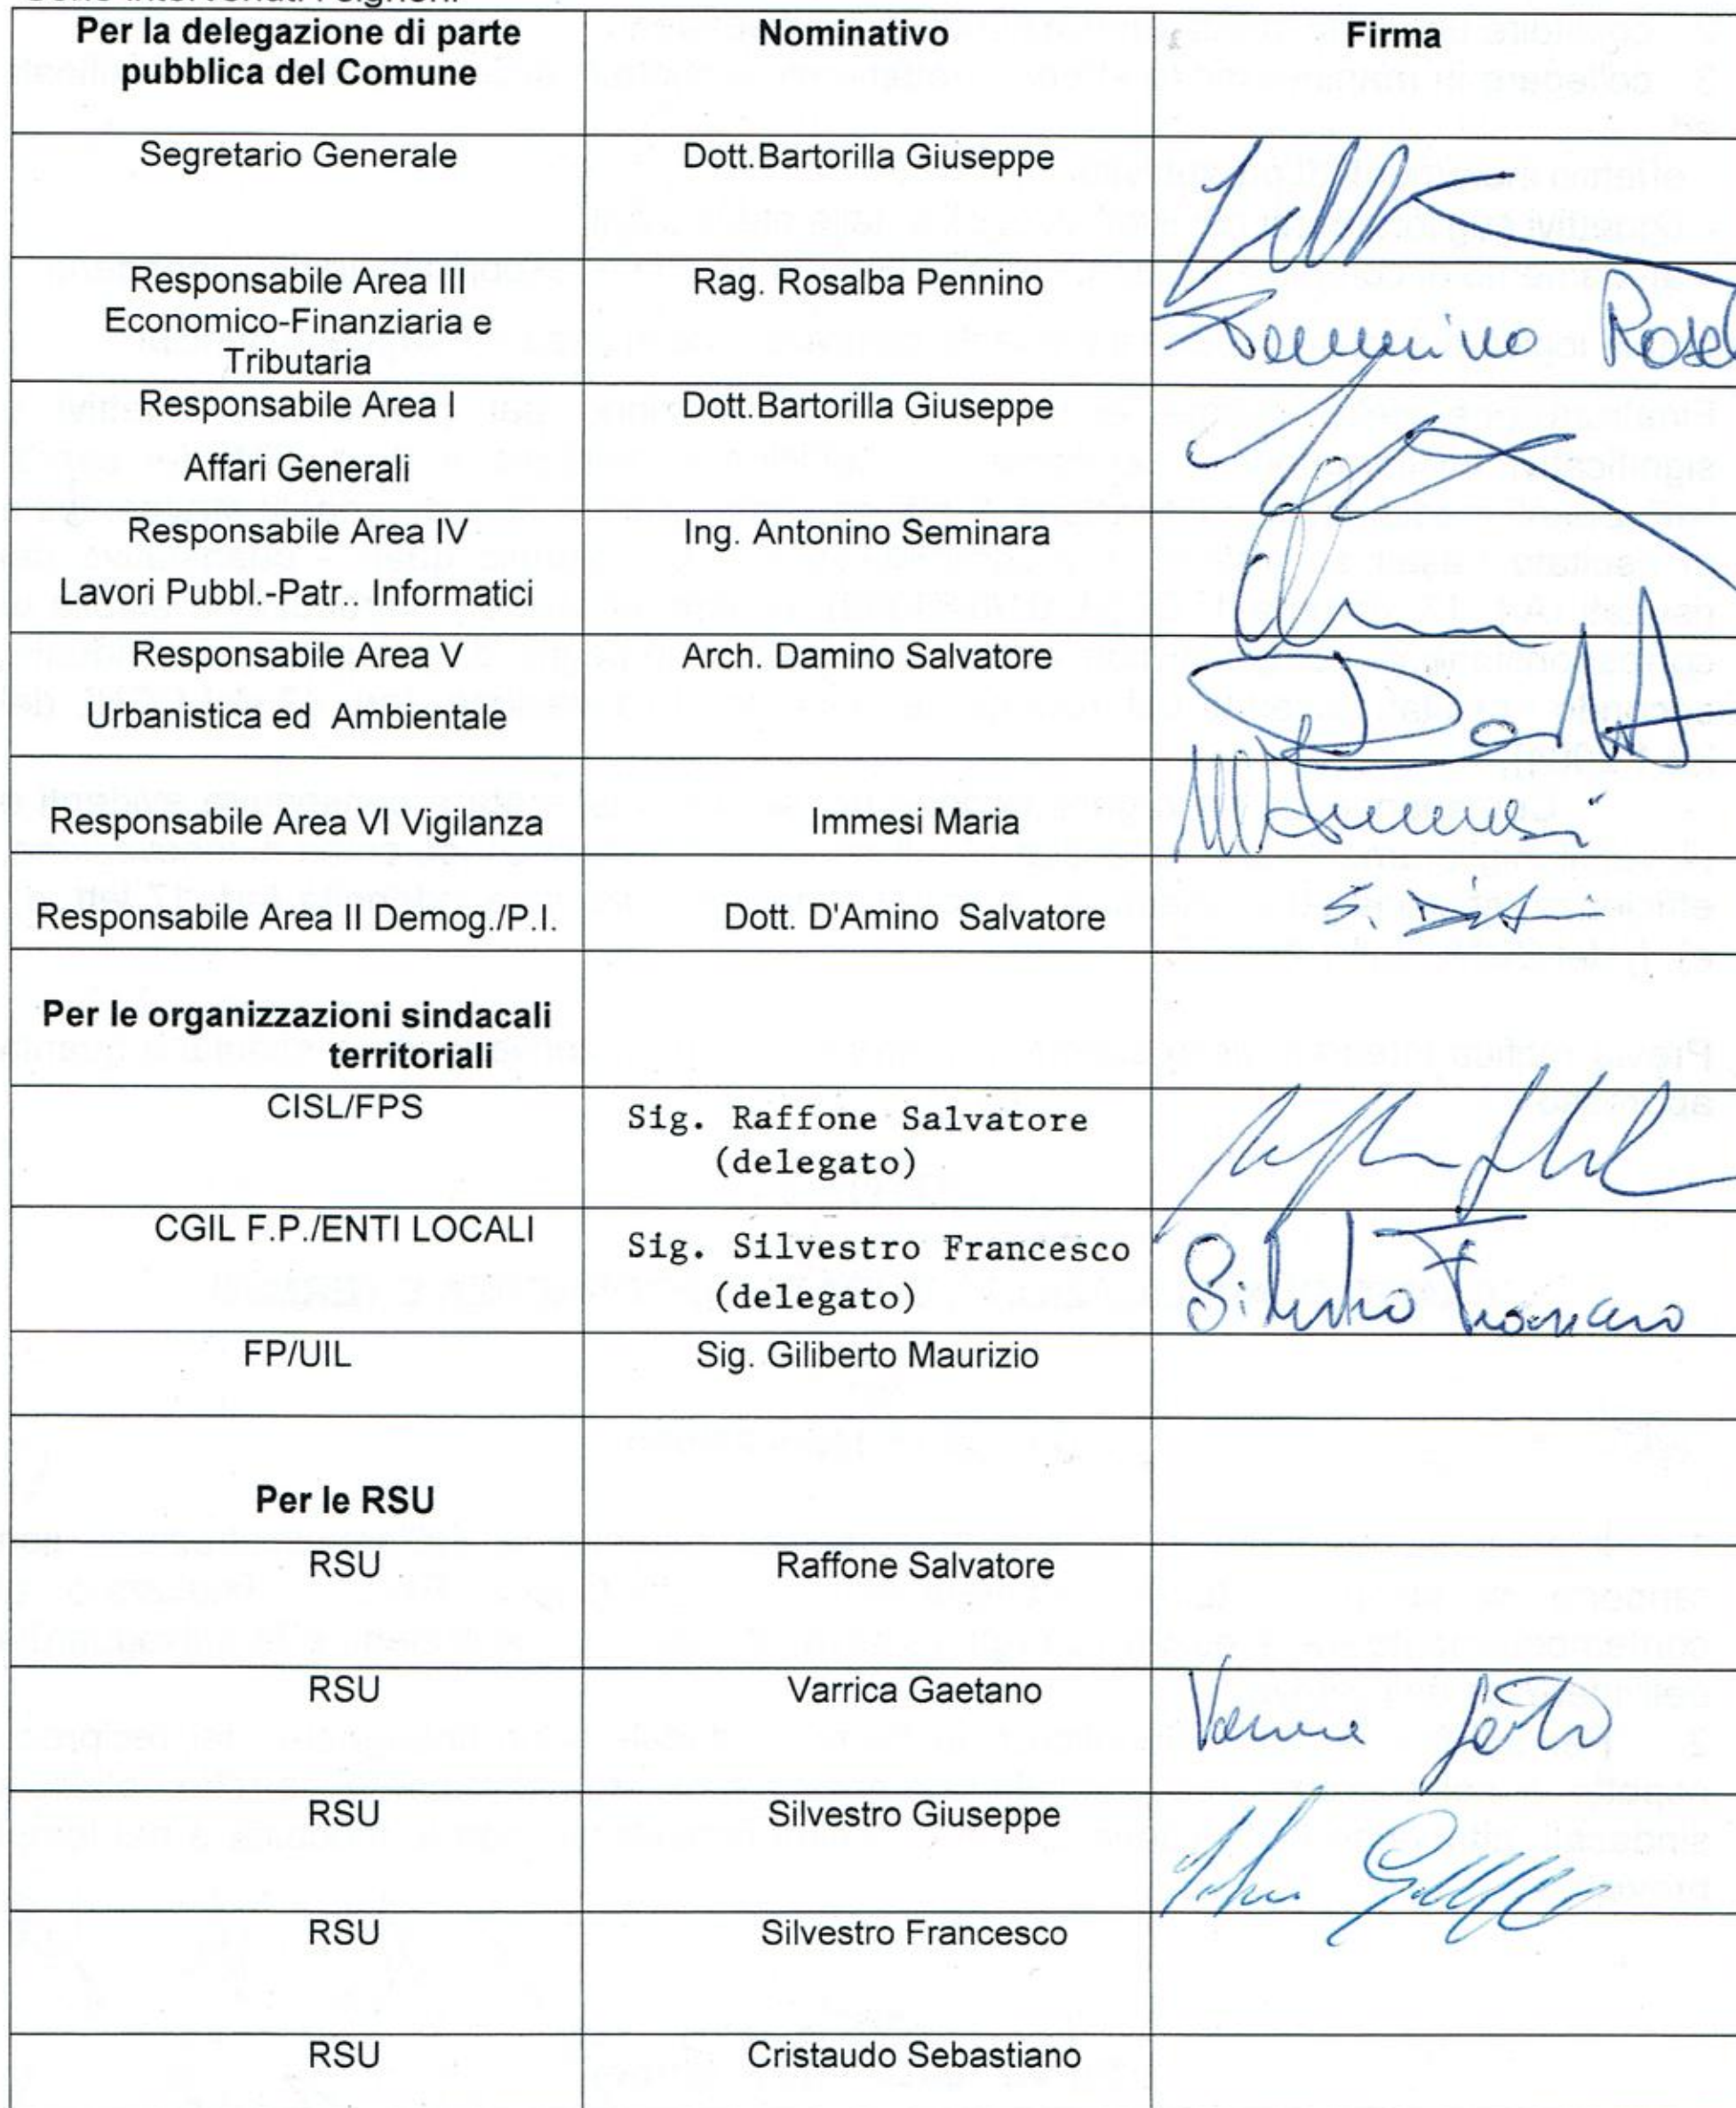 Per la delegazione di parte pubblica del Comune Nominativo Firma
Segretario Generale Dott.Bartorilla Giuseppe
Responsabile Area III Rag. Rosalba Pennino
Economico-Finanziaria e
Tributaria
Pennino Rosal
Responsabile Area I Dott.Bartorilla Giuseppe
Affari Generali
Responsabile Area IV Ing. Antonino Seminara
Lavori Pubbl.-Patr.. Informatici
Responsabile Area V Arch. Damino Salvatore
Urbanistica ed Ambientale
Responsabile Area VI Vigilanza Immesi Maria M Immesi
Responsabile Area II Demog./P.I. Dott. D'Amino Salvatore
Per le organizzazioni sindacali
territoriali
CISL/FPS Sig. Raffone Salvatore
(delegato)
CGIL F.P./ENTI LOCALI Sig. Silvestro Francesco
(delegato)
Silvestro Francesco
FP/UIL Sig. Giliberto Maurizio
Per le RSU
RSU Raffone Salvatore
RSU Varrica Gaetano
RSU Silvestro Giuseppe
RSU Silvestro Francesco
RSU Cristaudo Sebastiano